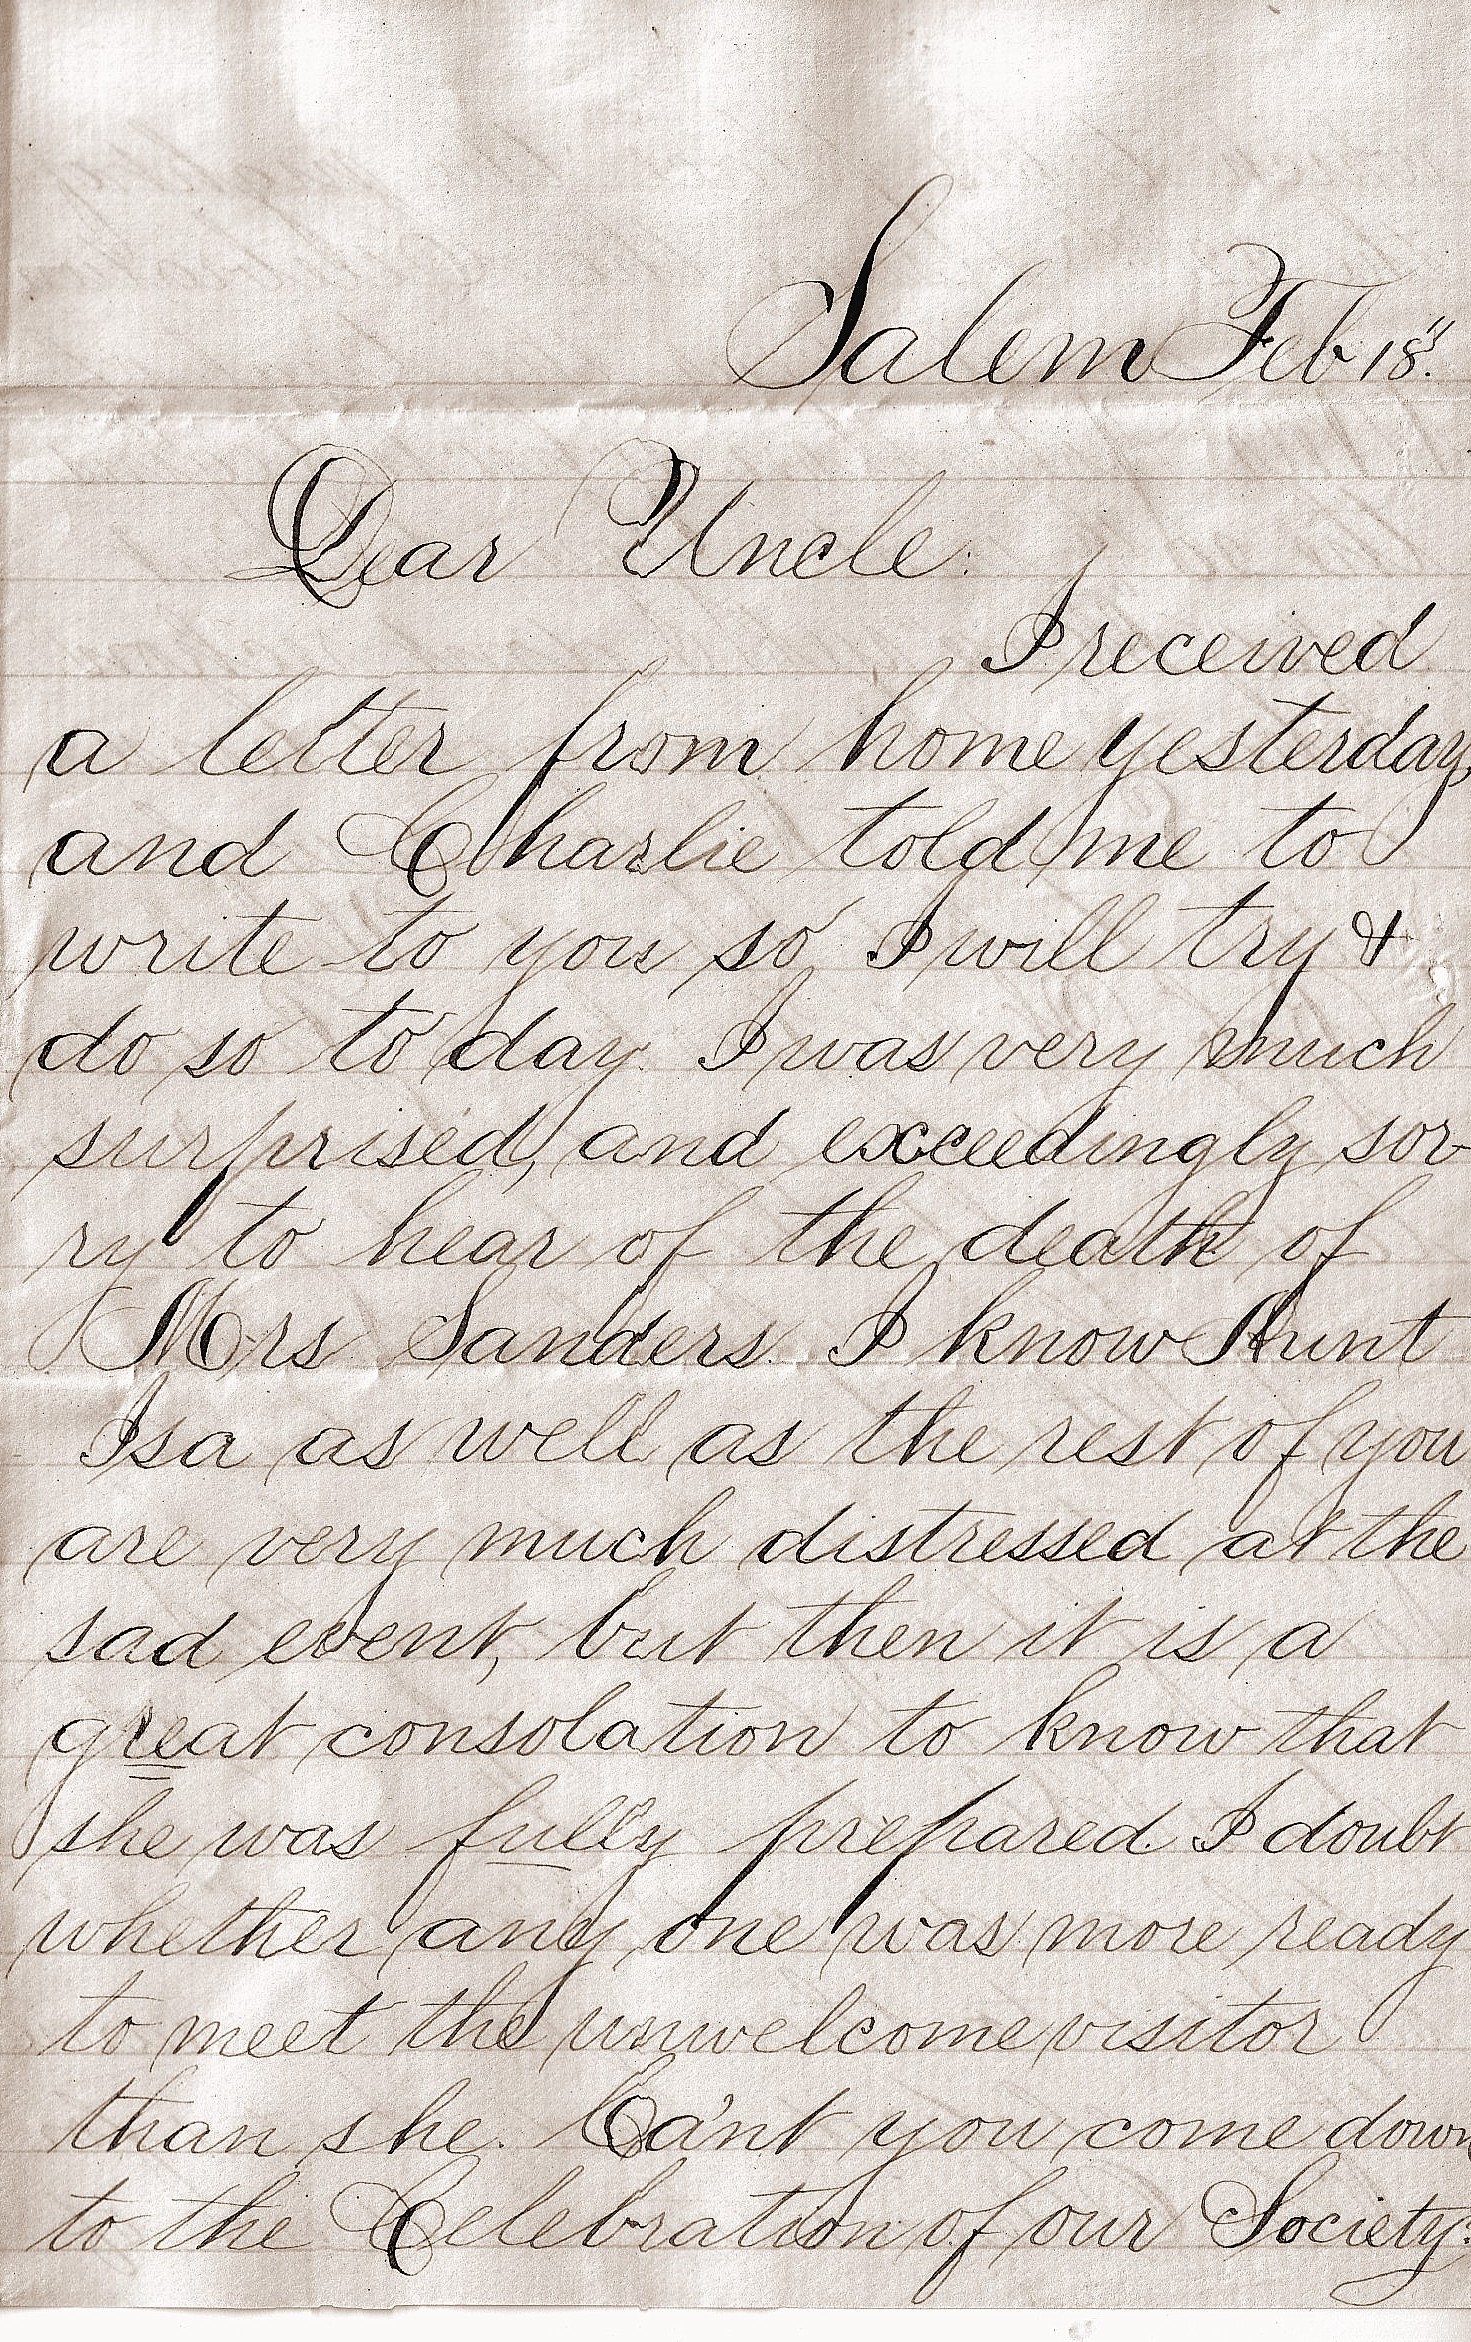 Salem Feb 18".
Dear Uncle:
I received
a letter from home yesterday,
and Charlie told me to
write to you so I will try &
do so to day. I was very much
surprised, and exceedingly sor-
ry to hear of the death of
Mrs Sanders. I know Aunt
Isa as well as the rest of you
are very much distressed at the
sad event, but then it is a
great consolation to know that
she was fully prepared. I doubt
whether any one was more ready
to meet the unwelcome visitor
than she. Ca'nt you come down
to the Celebration of our Society;